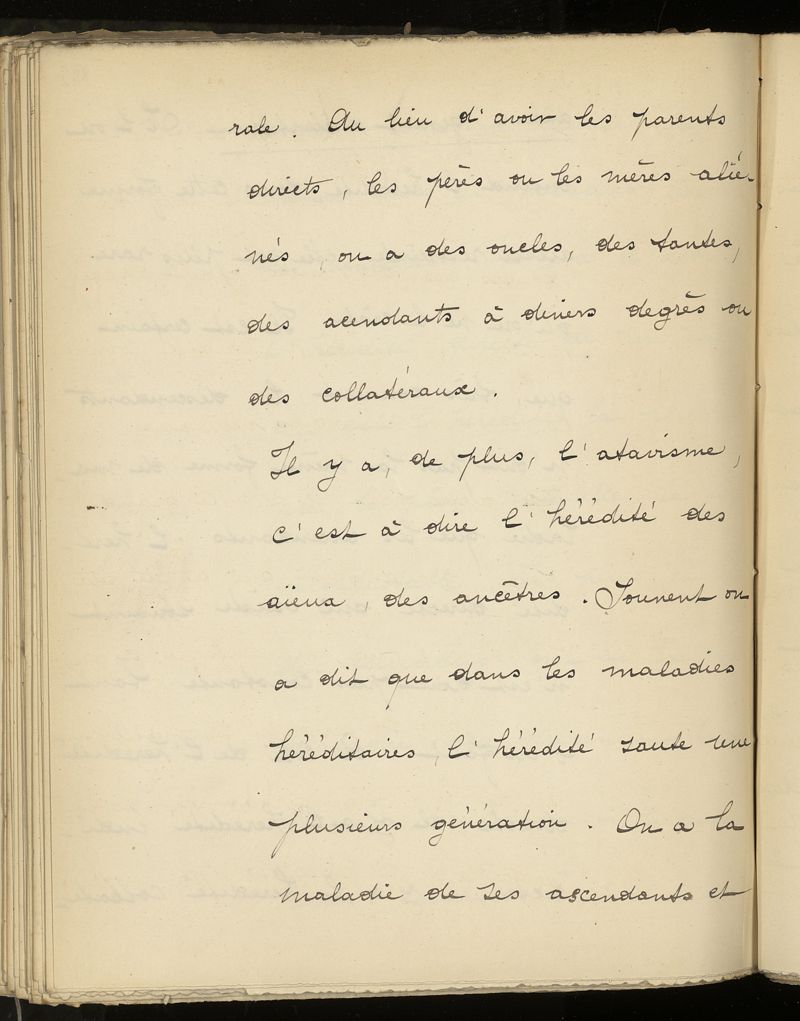 rale. Au lieu d'avoir les parents
directs, les pères ou les mères alié-
nés, on a des oncles, des tantes,
des acendants à divers degrès ou
des collatéraux.
Il y a, de plus, l'atavisme,
c'est à dire l'hérédité des
aïeux, des ancêtres. Souvent on
a dit que dans les maladies
héréditaires, l'hérédité saute une
plusieurs génération. On a la
maladie de ses ascendants et